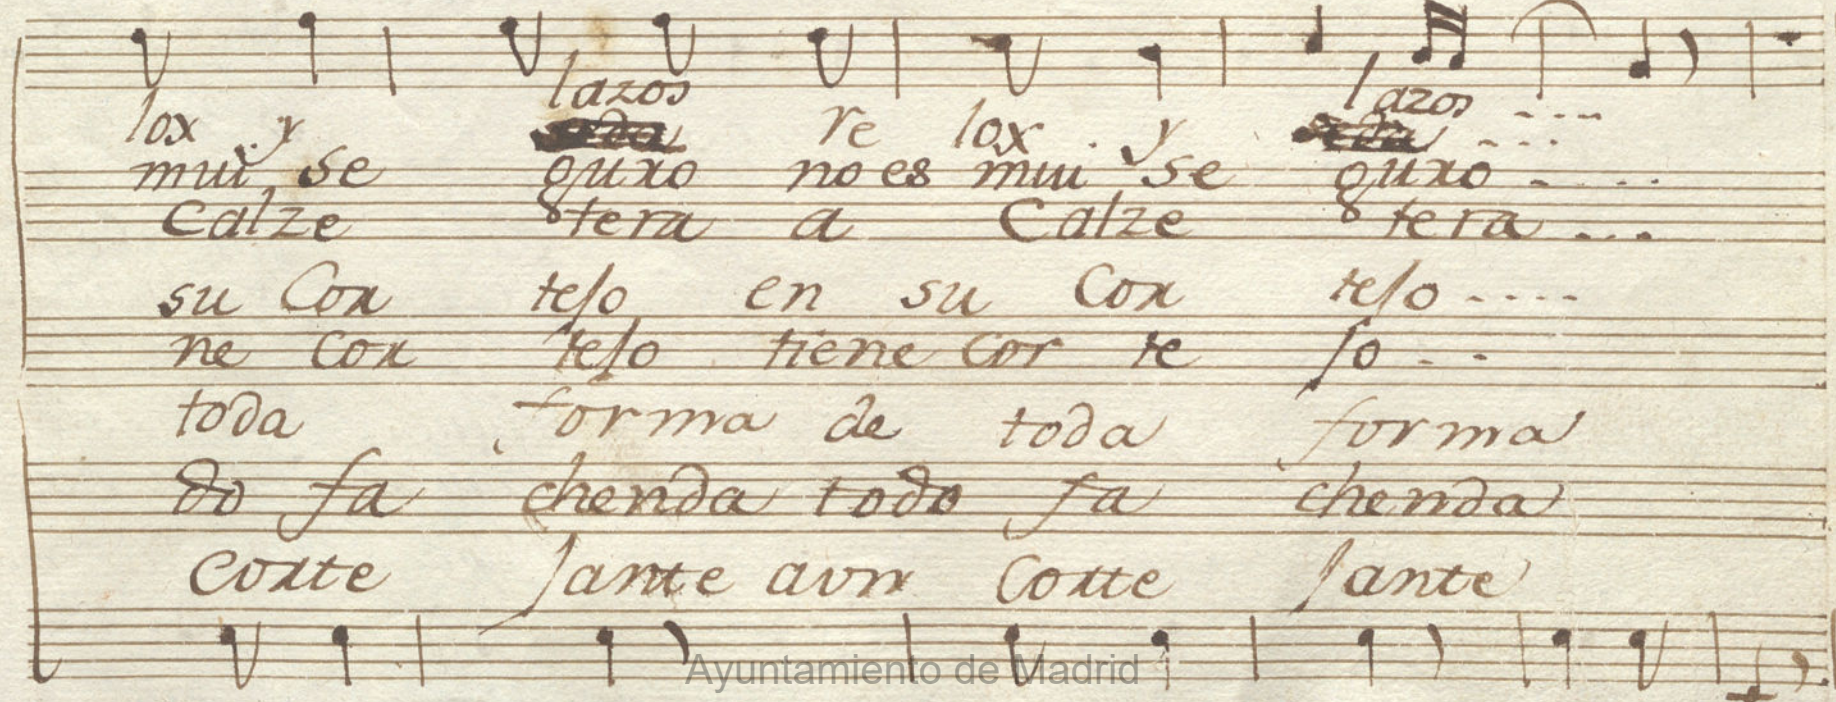 lazos lazos ....
lox y re lox. y ....
mui se guro no es mui se guro ....
Calze tera a Calze tera ...
su Cor tejo en su Cor tejo ....
ne Cor tejo tiene Cor te jo ..
toda forma de toda forma
do fa chenda todo fa chenda
corte jante aun Corte jante
Ayuntamiento de Madrid